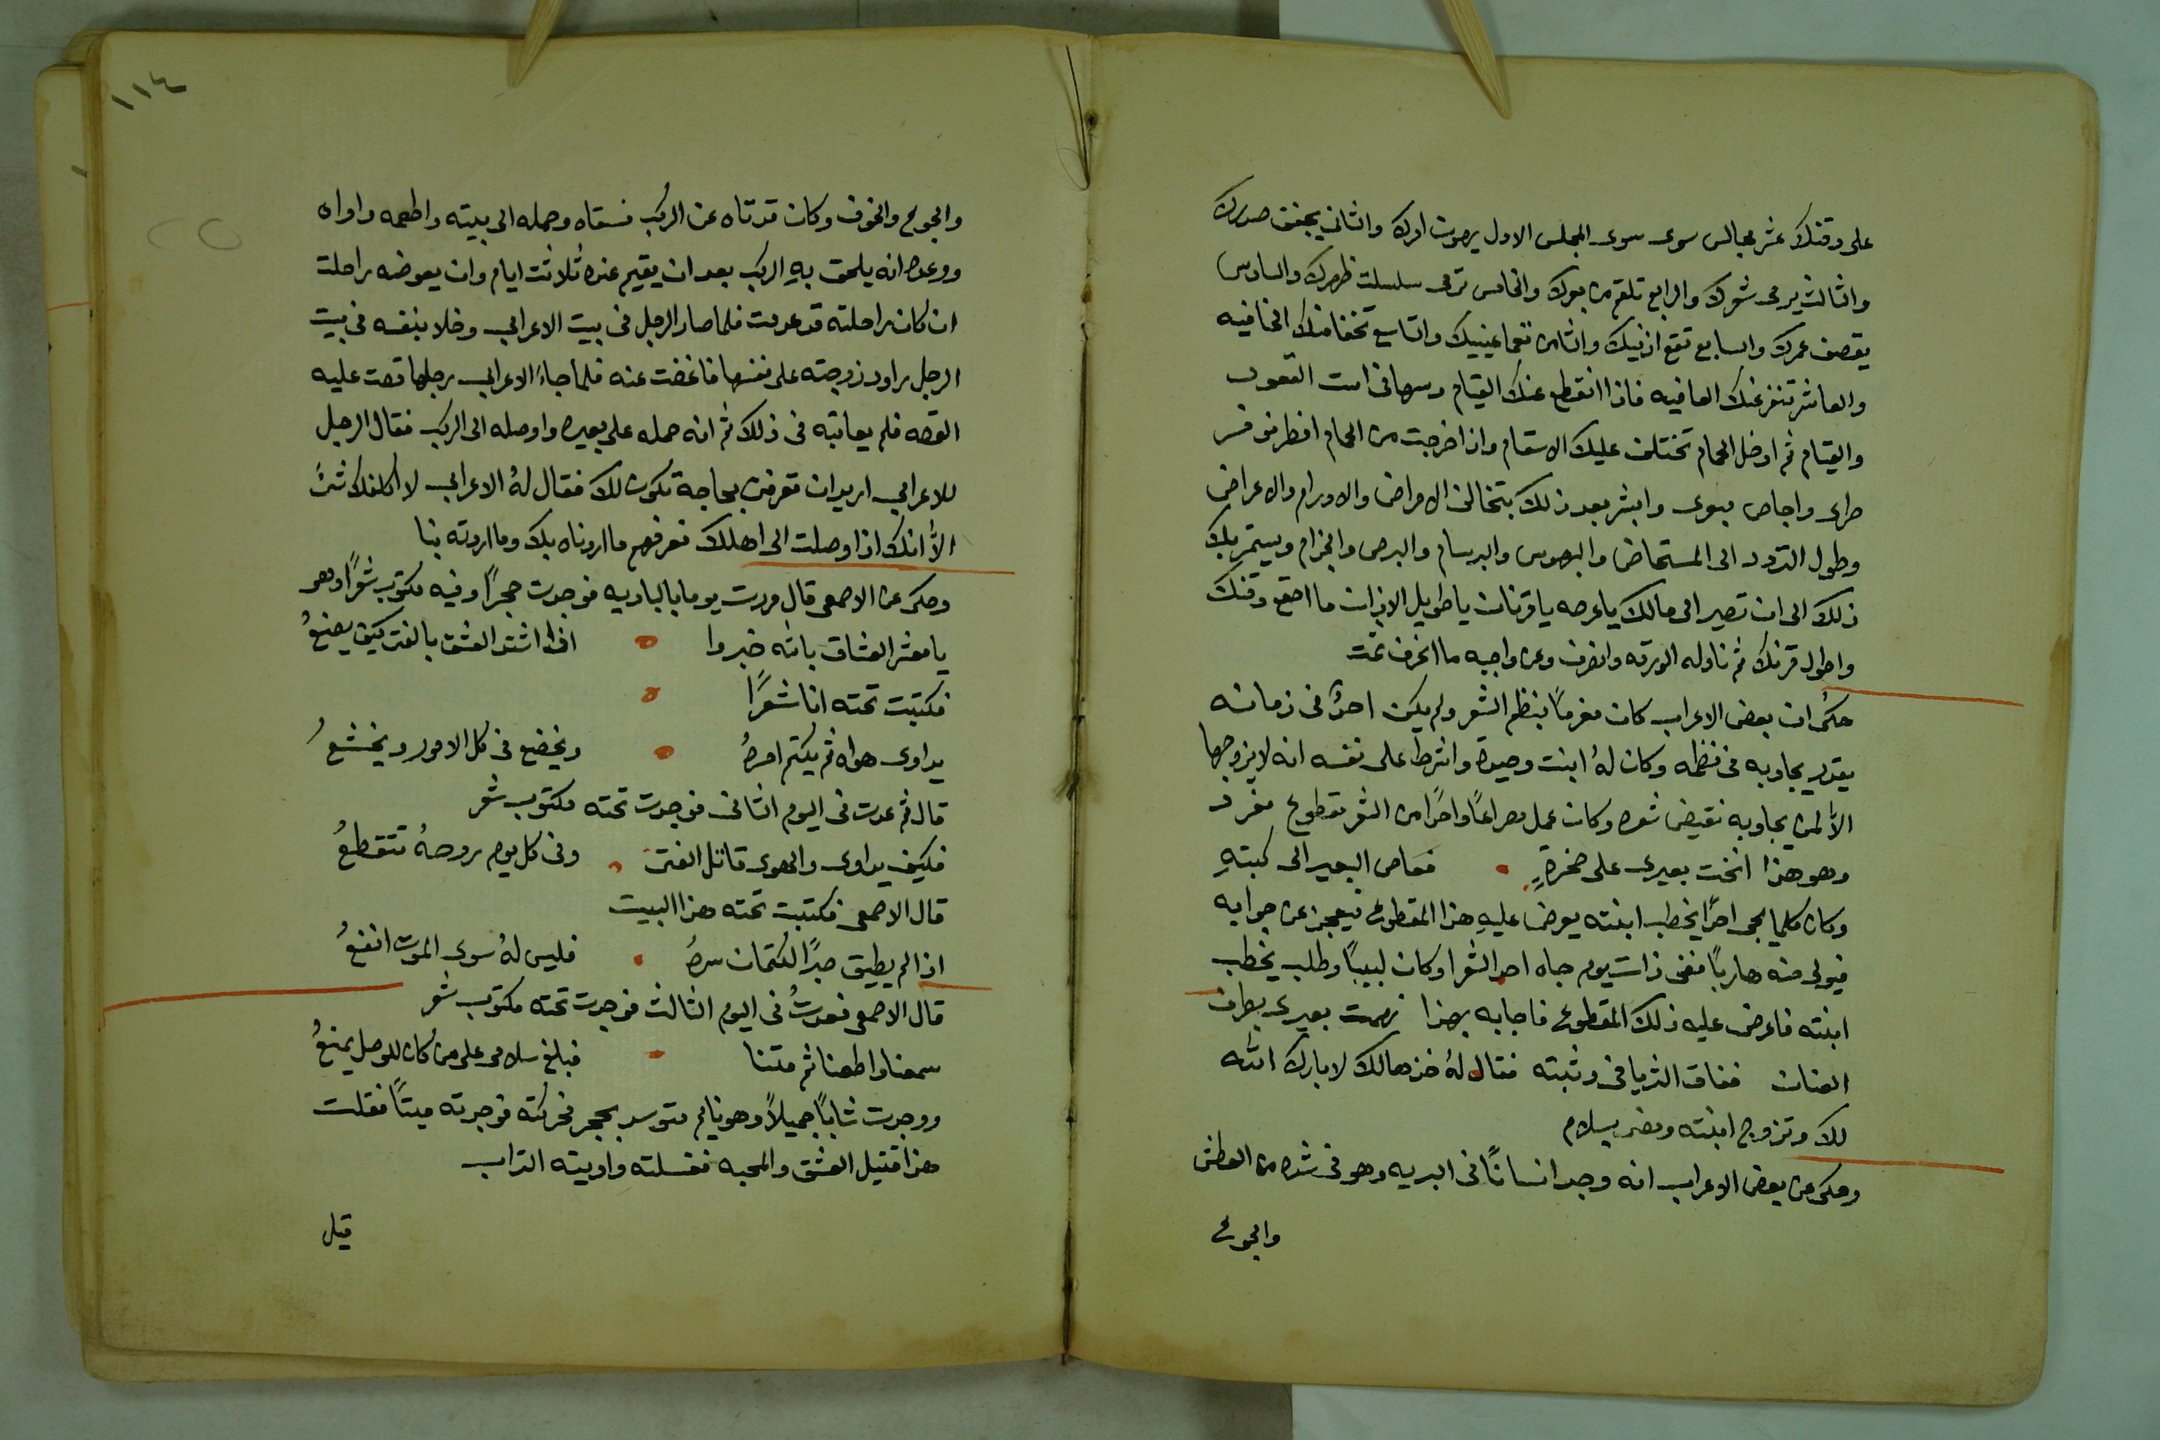 على وقتك عشر مجالس سوى سوى المجلس الاول يرمون اورك والثاني يجفف صدرك
والثالث يرمى شعرك والرابع تلقم من بعرك والخامس ترمى سلسلت ظهرك والسادس
يقصف عمرك والسابع تقع اذنيك والثامن تعما عينيك والتاسع تخفا منك الخافيه
والعاشر تنفر عنك العافيه فاذا انقطع عنك القيام وسها في است القعود
والقيام ثم ادخل الحمام تختلف عليك الاسقام واذا خرجت من الحمام افطر فوق
طرى واجاص بنوى وابشر بعد ذلك بتخالف الامراض والاورام والاعراض
وطول التردد الى المستحاض والبرص والبرسام والبرص والجزام ويستمر بك
ذلك الى ان تصير الى مالك يا عرصه يا قرنان يا طويل الاذان ما اصقع دقنك
واطول قرنك ثم ناوله الورقه وانصرف وعن واجبه ما انحرف تمت
حكى ان بعض الاعراب كان مغرمًا بنظم الشعر ولم يكن احدٌ في زمانه
يقدر يجاوبه في نظمه وكان لهُ ابنت وحيدة واشترط على نفسه انه لا يزوجها
الا لمن يجاوبه نقيض شعره وكان عمل مصراعًا واحدًا من الشعر مقطوع مفرد
وهو هذا انخت بعيرى على صخرةٍ فغاص البعير الى كبتهِ
وكان كلما يجى احدًا يخطب ابنته يعرض عليهِ هذا المقطوع فيعجز عن جوابه
فيولى منه هاربًا ففى ذات يوم جاه احد الشعرا وكان لبيبًا وطلب يخطب
ابنته فاعرض عليه ذلك المقطوع فاجابه بهذا نهمت بعيرى بطرف
العنان ففاق الثريا في وثبته فقال لهُ خذها لك لا بارك الله
لك وتزوج ابنته ومضى بسلام
وحكى عن بعض الاعراب انه وجد انسانًا في البريه وهو في شده من العطش
والجوع
١١٤
والجوع والخوف وكان قد تاه عن الركب فسقاه وحمله الى بيته واطعمه واواه
ووعده انه يلحق بهِ الركب بعد ان يقيم عنده ثلاثت ايام وان يعوضه راحلت
ان كان راحلته قد عدمت فلما صار الرجل في بيت الاعرابي وخلا بنفسه في بيت
الرجل راود زوجته على نفسها فاغضت عنه فلما جاء الاعرابي رجلها قصت عليه
القصه فلم يعاتبه في ذلك ثم انه حمله على بعيره واوصله الى الركب فقال الرجل
للاعرابي اريد ان تعرفنى بحاجة تكون لك فقال لهُ الاعرابي لا اكلفك شئ
الا انك اذا وصلت الى اهلك فعرفهم ما اردناه بك وما اردته بنا
وحكى عن الاصمعى قال مررت يوما بالباديه فوجدت حجرًا وفيه مكتوب شعرًا وهو
يا معشر العشاق بالله خبروا اذا اشتد العشق بالفتى كيف يصنعُ
فكتبت تحته انا شعرًا
يداوى هواه ثم يكتم امرهُ ويخضع في كل الامور ويخشعُ
قال ثم عدت في اليوم الثاني فوجدت تحته مكتوب شعر
فكيف يداوى والهوى قاتل الفتى وفى كل يوم روحهُ تتقطعُ
قال الاصمعى فكتبت تحته هذا البيت
اذا لم يطيق صبرًا لكتمان سرهُ فليس لهُ سوى الموت انفعُ
قال الاصمعى فعدتُ في اليوم الثالث فوجدت تحته مكتوب شعر
سمعنا واطعنا ثم متنا فبلغ سلامى على من كان للوصل يمنعُ
ووجدت شابًا جميلاً وهو نايم متوسد بحجر فحركته فوجدته ميتًا فقلت
هذا قتيل العشق والمحبه فغسلته واويته التراب
قيل